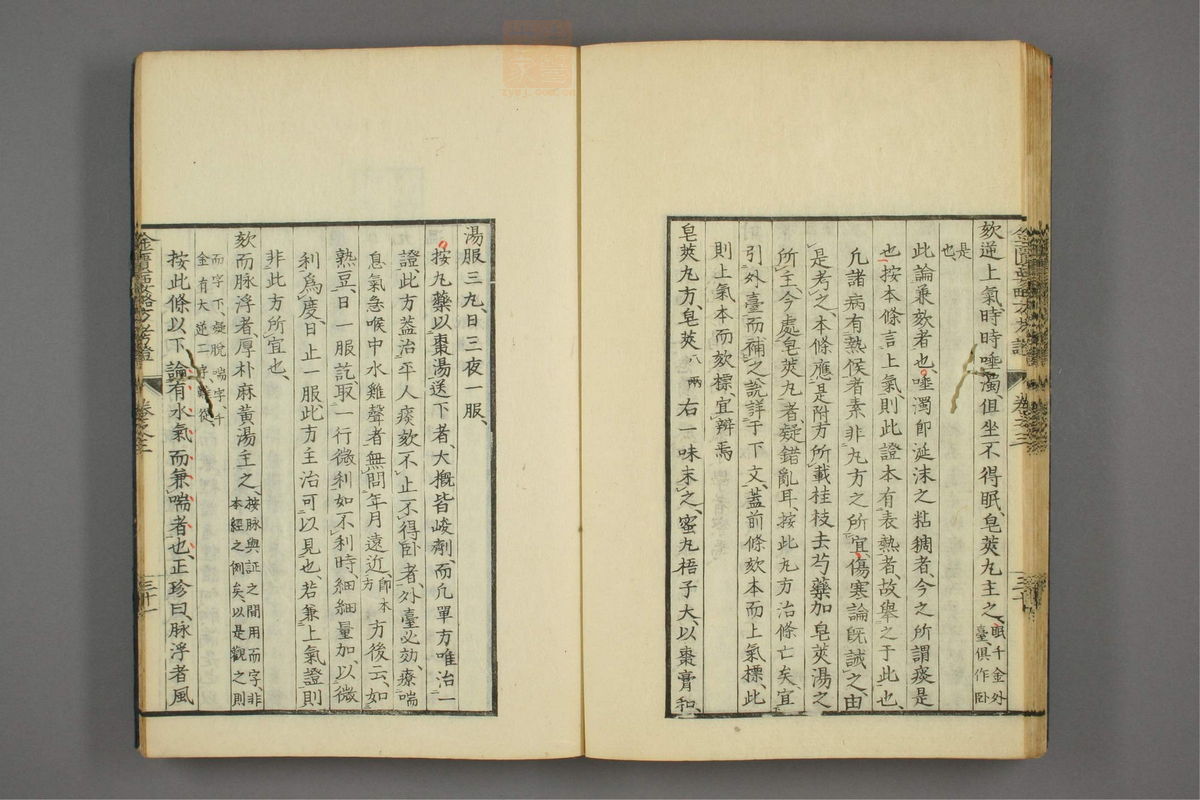 欬逆上氣時時唾濁但坐不得眠皂莢丸主之眠千金外臺俱作卧
是也
此論兼欬者也唾濁卽涎沫之粘稠者今之所謂痰是
也按本條言上氣則此證本有表熱者故舉之于此也
凡諸病有熱候者素非丸方之所宜傷寒論既誡之由
是考之本條應是附方所載桂枝去芍藥加皂莢湯之
所主今處皂莢丸者疑錯亂耳按此丸方治條亡矣宜
引外臺而補之說詳于下文蓋前條欬本而上氣標此
則上氣本而欬標宜辨焉
皂莢丸方皂莢八兩右一味末之蜜丸梧子大以棗膏和
湯服三丸日三夜一服
按丸藥以棗湯送下者大槪皆峻劑而凡單方唯治一
證此方蓋治平人痰欬不止不得卧者外臺必効療喘
息氣急喉中水雞聲者無問年月遠近卽本方方後云如
熟豆日一服訖取一行微利如不利時細細量加以微
利爲度日止一服此方主治可以見也若兼上氣證則
非此方所宜也
欬而脉浮者厚朴麻黃湯主之按脉與証之間用而字非本經之例矣以是觀之則
而字下疑脫喘字千金有大逆二字難從
按此條以下論有水氣而兼喘者也正珍曰脉浮者風
金匱要略方考證
卷之三
三十一